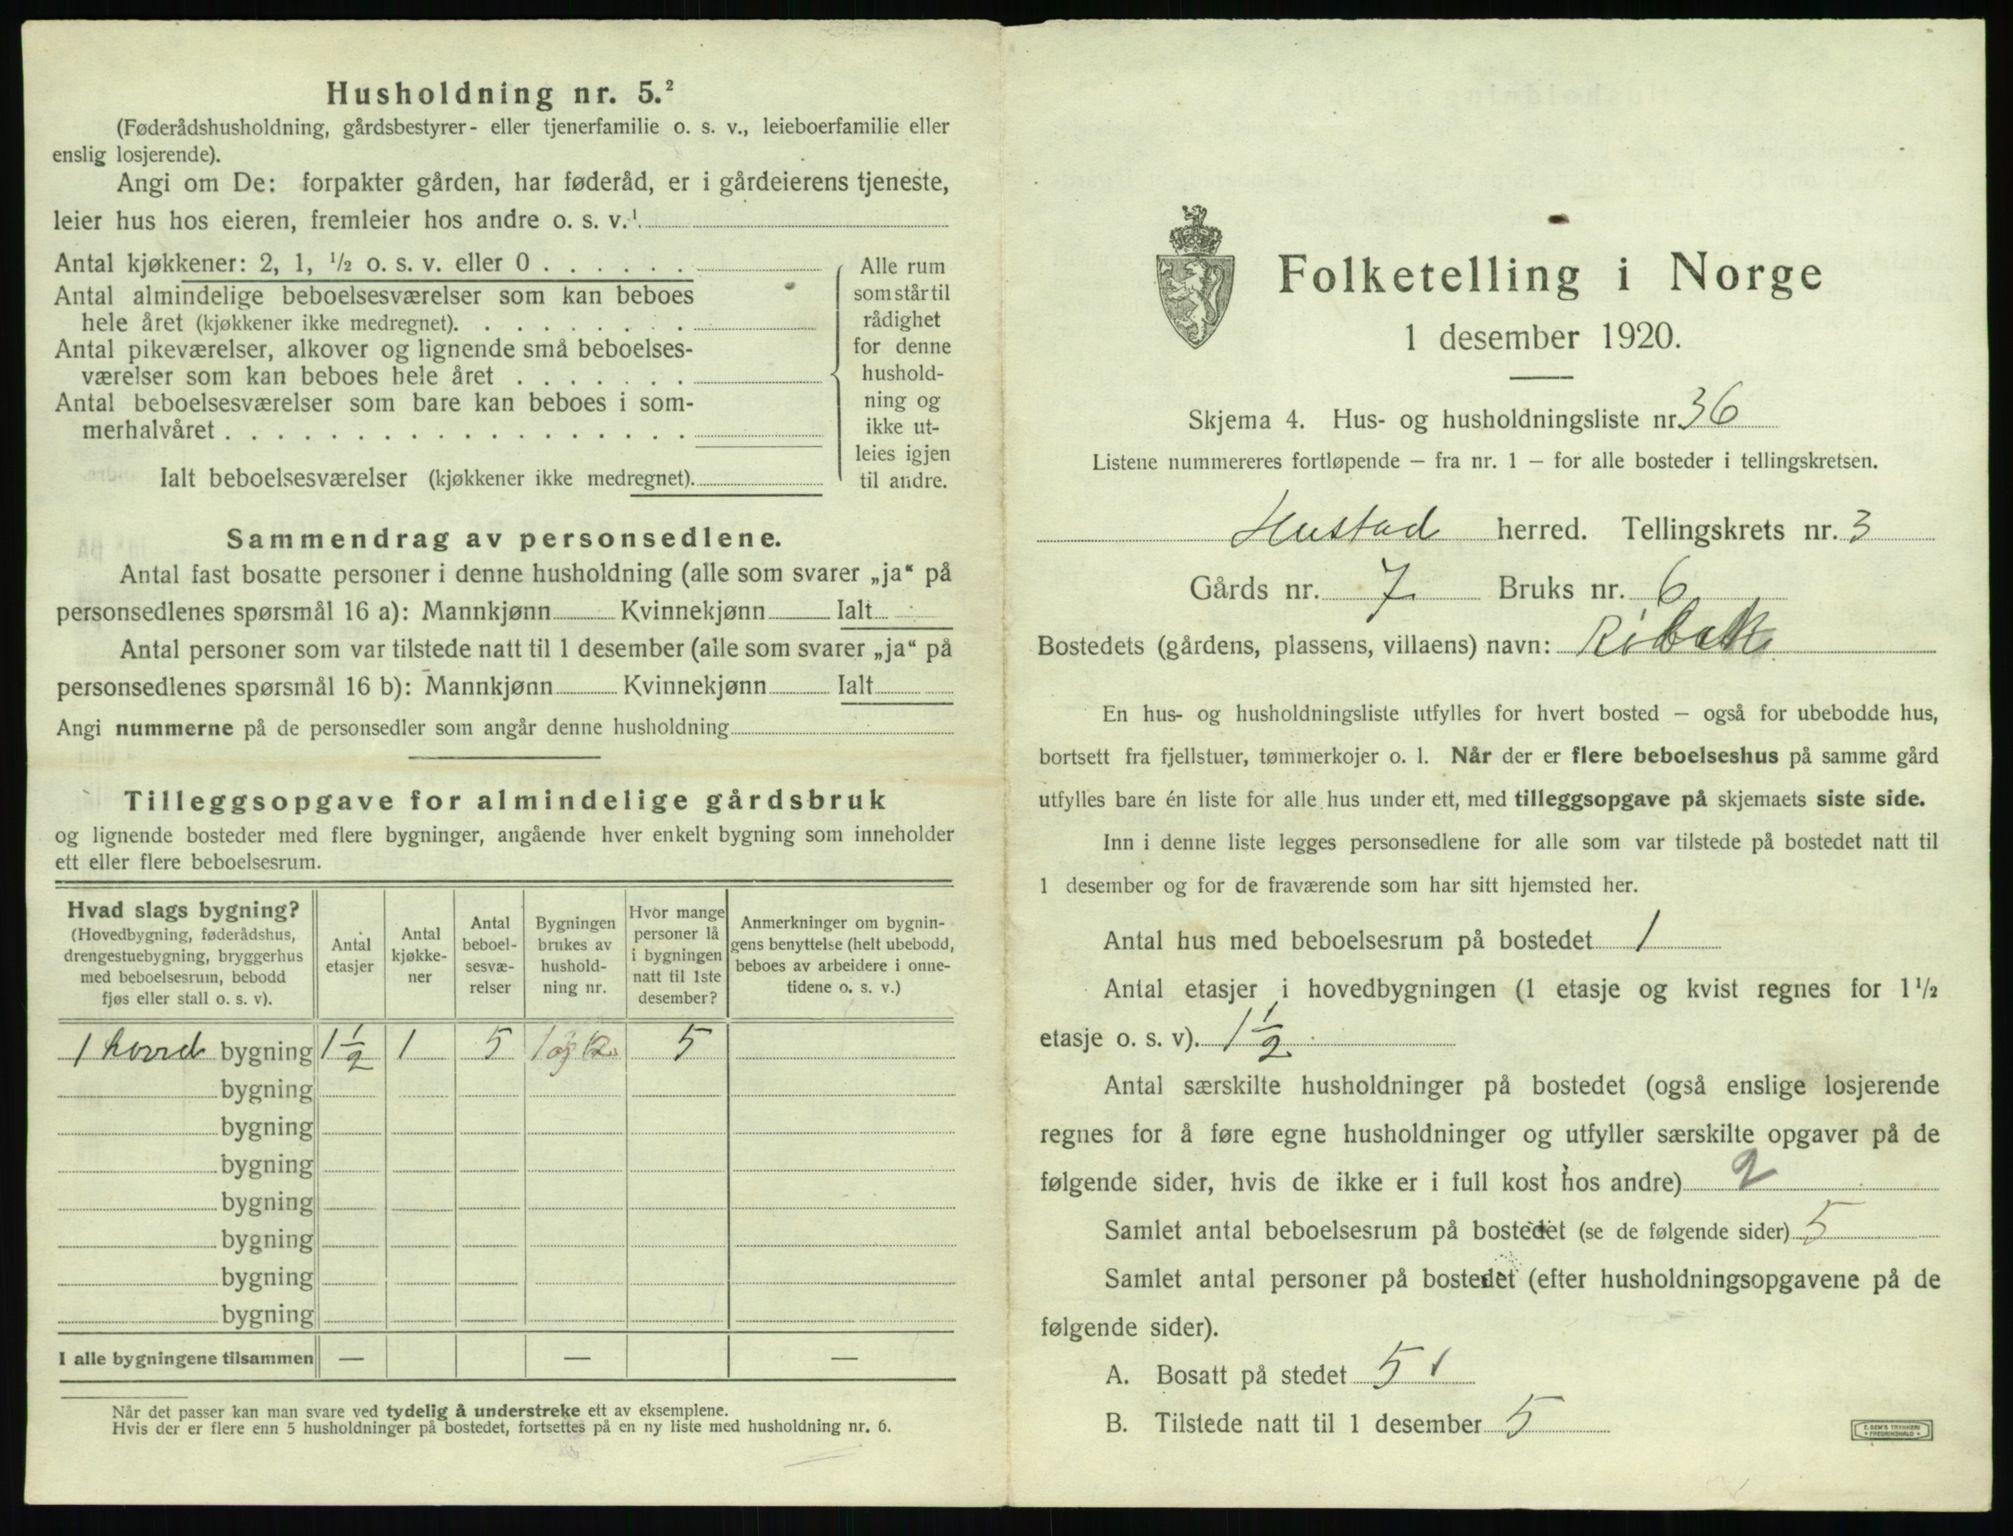 Husholdning nr. 5.²
(Føderådshusholdning, gårdsbestyrer- eller tjenerfamilie o. s. v., leieboerfamilie eller
enslig losjerende).
Angi om De: forpakter gården, har føderåd, er i gårdeierens tjeneste,
leier hus hos eieren, fremleier hos andre o. s. v.¹
Antal kjøkkener: 2, 1, ½ o. s. v. eller 0 . . . . . .
Antal almindelige beboelsesværelser som kan beboes
hele året (kjøkkener ikke medregnet). . . . . . . . .
Antal pikeværelser, alkover og lignende små beboelses-
værelser som kan beboes hele året . . . . . . .
Antal beboelsesværelser som bare kan beboes i som-
merhalvåret . . . . . . . . . . . . . . . . . .
Ialt beboelsesværelser (kjøkkener ikke medregnet).
Alle rum
som står til
rådighet
for denne
hushold-
ning og
ikke ut-
leies igjen
til andre.
Sammendrag av personsedlene.
Antal fast bosatte personer i denne husholdning (alle som svarer „ja“ på
personsedlenes spørsmål 16 a): Mannkjønn Kvinnekjønn Ialt
Antal personer som var tilstede natt til 1 desember (alle som svarer „ja“ på
personsedlenes spørsmål 16 b): Mannkjønn Kvinnekjønn Ialt
Angi nummerne på de personsedler som angår denne husholdning
Tilleggsopgave for almindelige gårdsbruk
og lignende bosteder med flere bygninger, angående hver enkelt bygning som inneholder
ett eller flere beboelsesrum.
Hvad slags bygning?
(Hovedbygning, føderådshus,
drengestuebygning, bryggerhus
med beboelsesrum, bebodd
fjøs eller stall o. s. v).
Antal
etasjer
Antal
kjøkke-
ner
Antal
beboel-
sesvæ-
relser
Bygningen
brukes av
hushold-
ning nr.
Hvor mange
personer lå
i bygningen
natt til 1ste
desember?
Anmerkninger om bygnin-
gens benyttelse (helt ubebodd,
beboes av arbeidere i onne-
tidene o. s. v.)
1 hoved bygning 1½ 1 5 1 og 2. 5
bygning
bygning
bygning
bygning
bygning
bygning
bygning
I alle bygningene tilsammen — — —
Når det passer kan man svare ved tydelig å understreke ett av eksemplene.
Hvis der er flere enn 5 husholdninger på bostedet, fortsettes på en ny liste med husholdning nr. 6.
Folketelling i Norge
1 desember 1920.
Skjema 4. Hus- og husholdningsliste nr. 36
Listene nummereres fortløpende – fra nr. 1 – for alle bosteder i tellingskretsen.
Hustad herred. Tellingskrets nr. 3
Gårds nr. 7 Bruks nr. 6
Bostedets (gårdens, plassens, villaens) navn:
En hus- og husholdningsliste utfylles for hvert bosted – også for ubebodde hus,
bortsett fra fjellstuer, tømmerkojer o. l. Når der er flere beboelseshus på samme gård
utfylles bare én liste for alle hus under ett, med tilleggsopgave på skjemaets siste side.
Inn i denne liste legges personsedlene for alle som var tilstede på bostedet natt til
1 desember og for de fraværende som har sitt hjemsted her.
Antal hus med beboelsesrum på bostedet 1
Antal etasjer i hovedbygningen (1 etasje og kvist regnes for 1½
etasje o. s. v). 1½
Antal særskilte husholdninger på bostedet (også enslige losjerende
regnes for å føre egne husholdninger og utfyller særskilte opgaver på de
følgende sider, hvis de ikke er i full kost hos andre) 2
Samlet antal beboelsesrum på bostedet (se de følgende sider) 5
Samlet antal personer på bostedet (efter husholdningsopgavene på de
følgende sider).
A. Bosatt på stedet 5
B. Tilstede natt til 1 desember 5